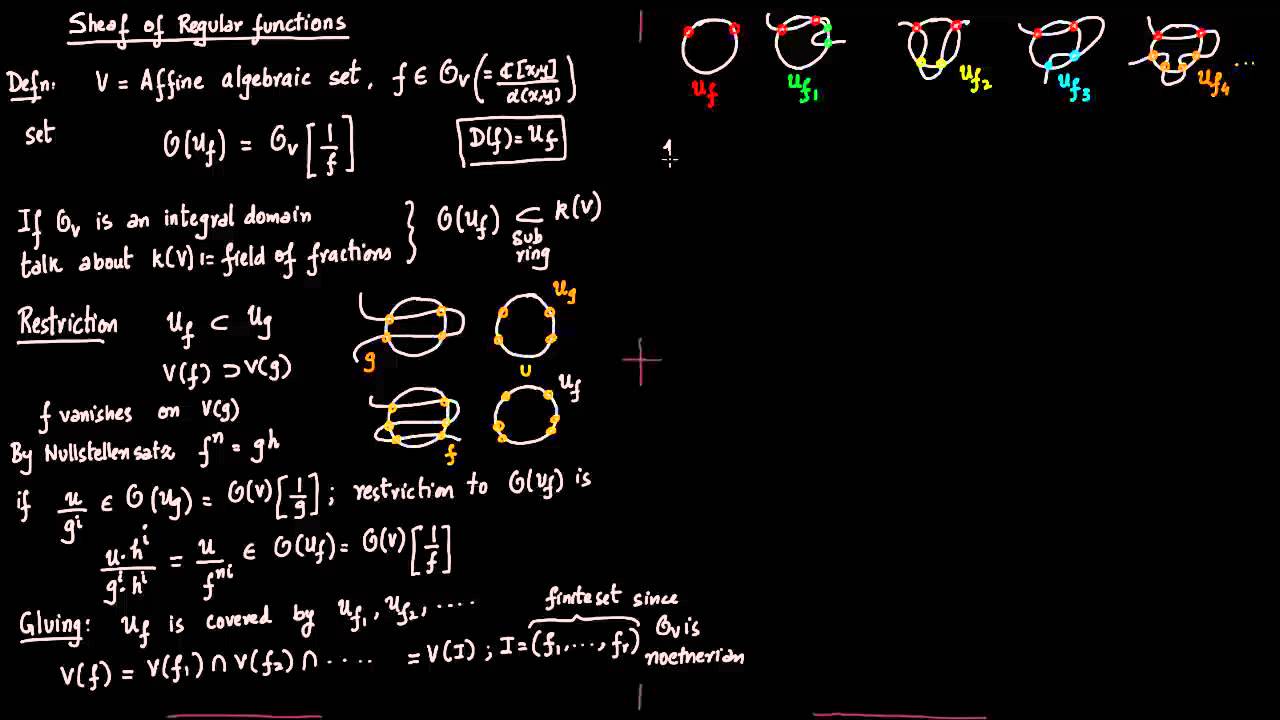 Sheaf of Regular functions
Defn: V = Affine algebraic set, f ∈ O_V (= ℂ[x,y] / α(x,y))
set O(U_f) = O_V [1/f] D(f) = U_f
If O_V is an integral domain
talk about k(V) := field of fractions } O(U_f) ⊂ k(V)
sub
ring
Restriction U_f ⊂ U_g
V(f) ⊃ V(g)
f vanishes on V(g)
By Nullstellensatz f^n = gh
if u/g^i ∈ O(U_g) = O(V)[1/g] ; restriction to O(U_f) is
u·h^i / g^i·h^i = u/f^{ni} ∈ O(U_f) = O(V)[1/f]
Gluing: U_f is covered by U_{f1}, U_{f2}, ....
V(f) = V(f1) ∩ V(f2) ∩ .... = V(I) ; I = (f1, ..., fr)
finite set since
O_V is
noetherian
g
U_g
U
f
U_f
U_f U_{f1} U_{f2} U_{f3} U_{f4} ...
1